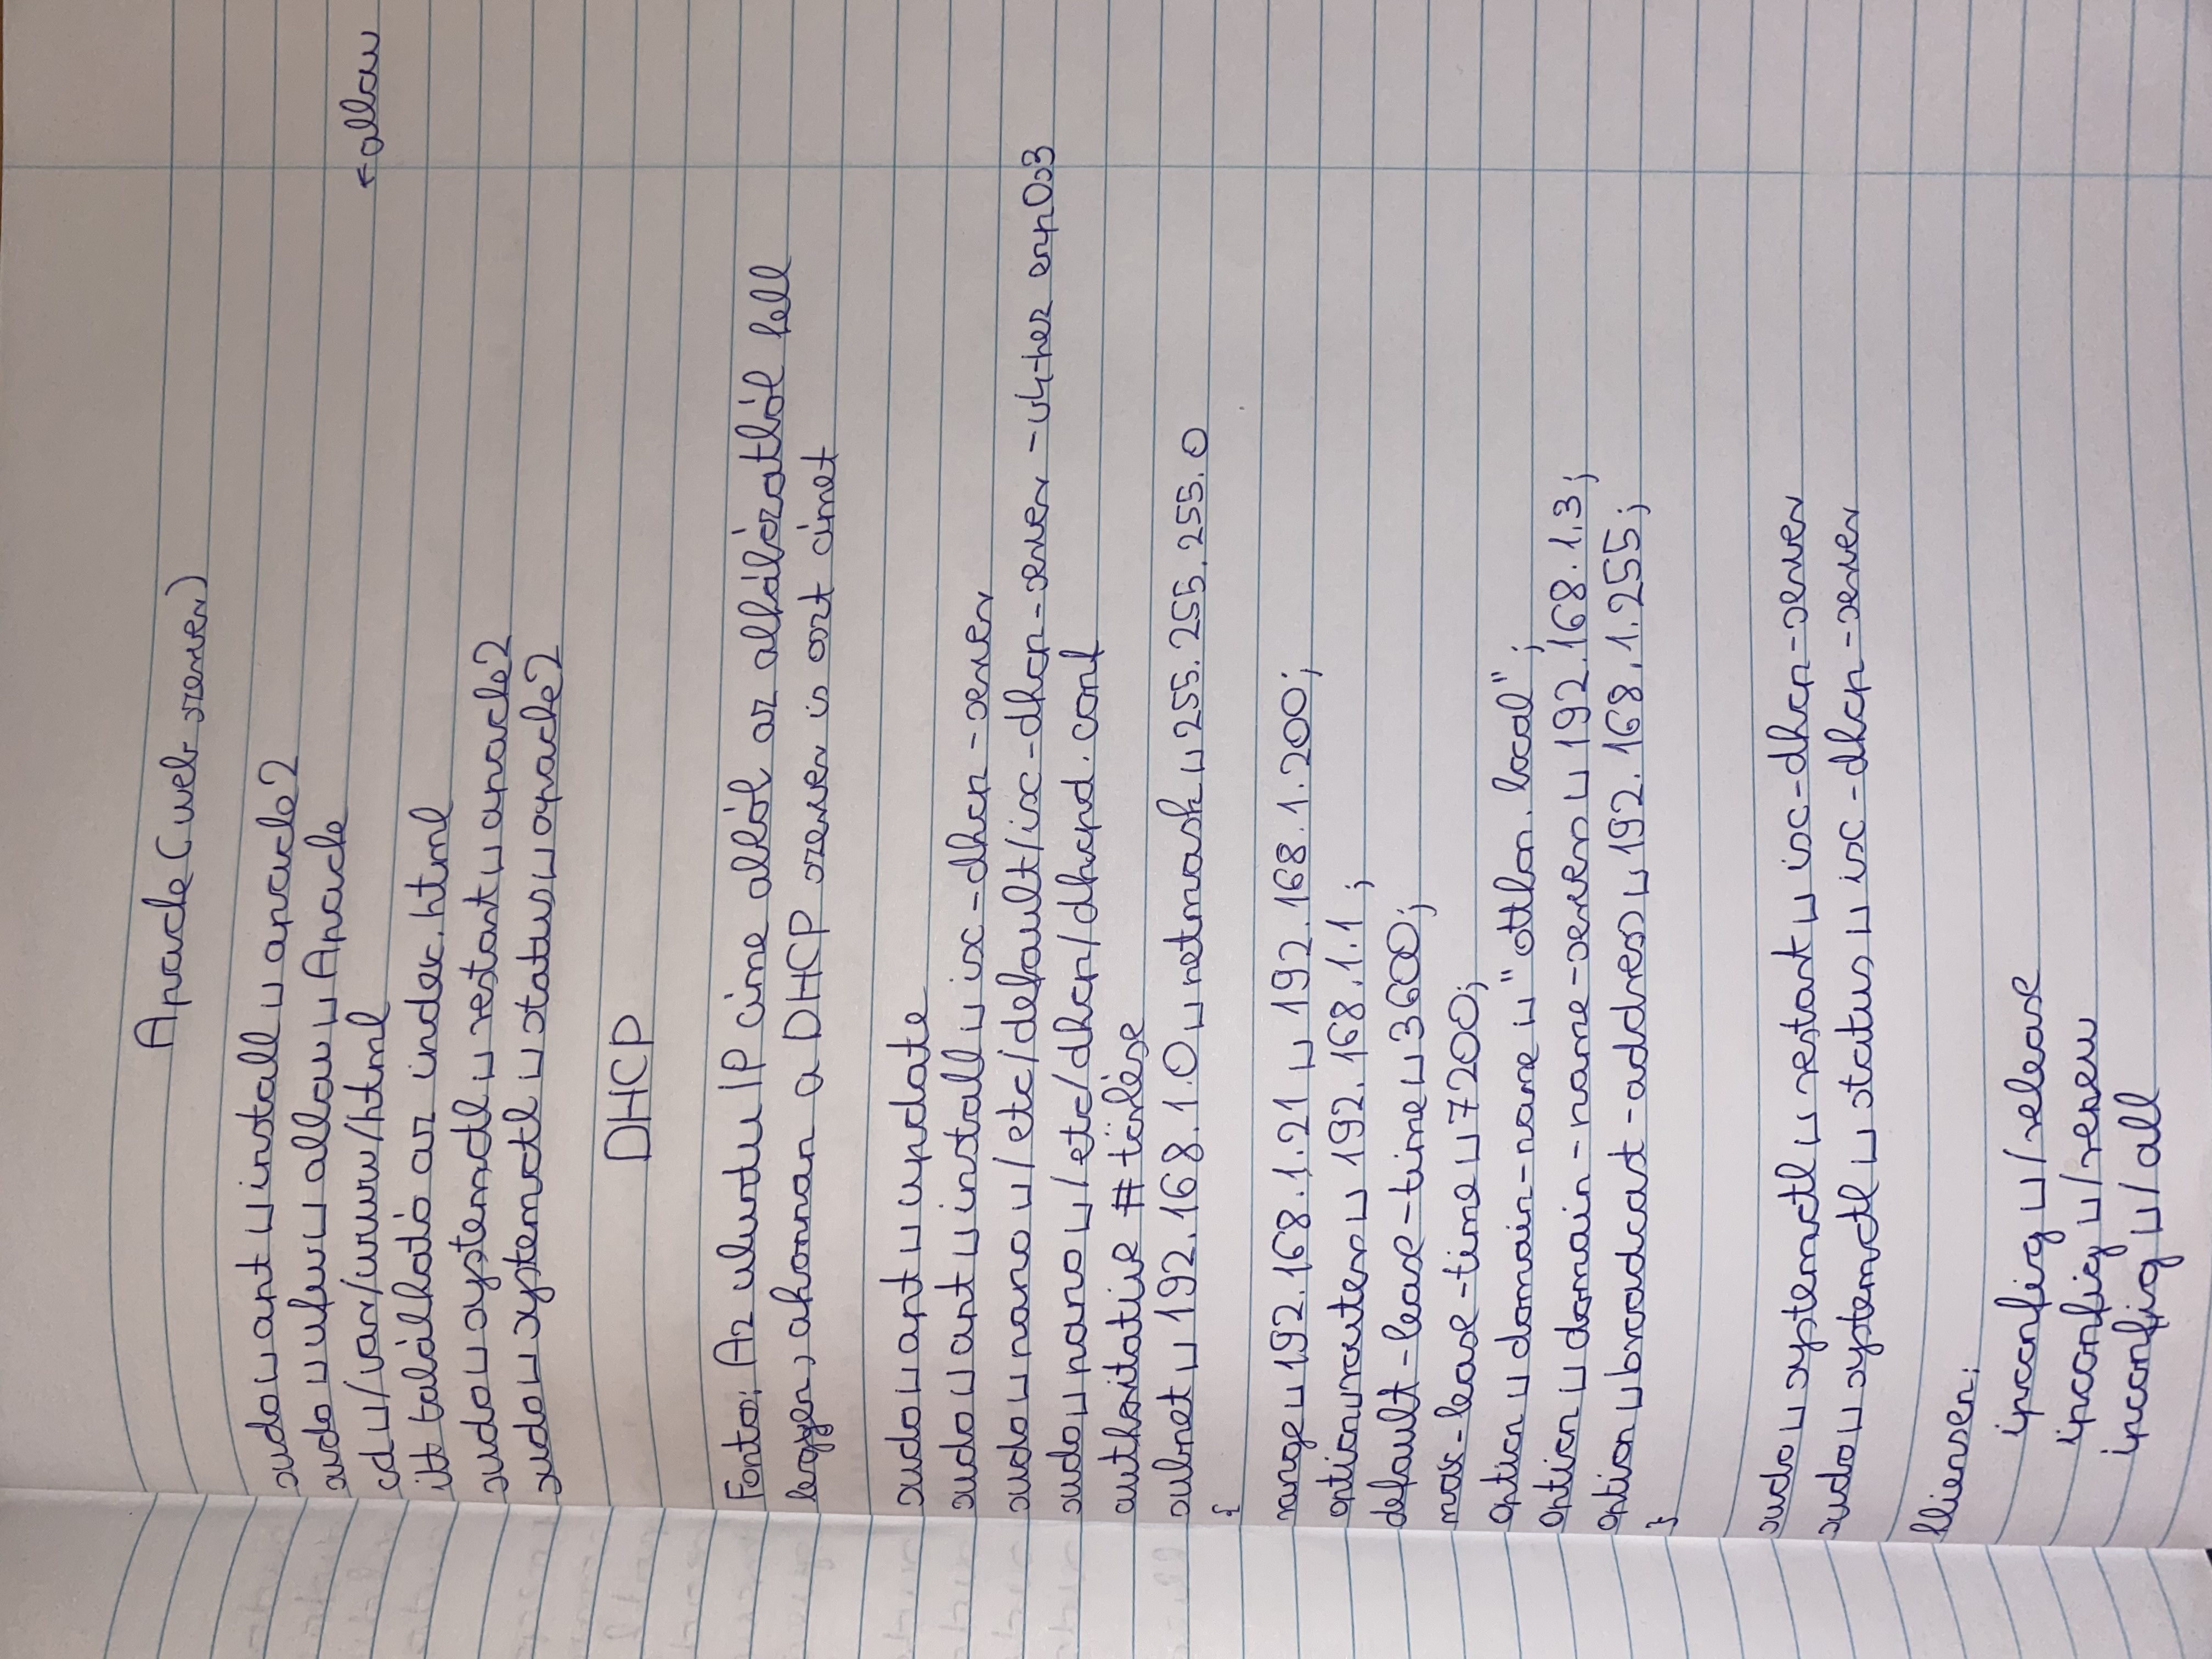 Apache (web szerver)
sudo␣apt␣install␣apache2
sudo␣ufw␣allow␣Apache
cd␣/var/www/html
←allow
itt található az index.html
sudo␣systemctl␣restart␣apache2
sudo␣systemctl␣status␣apache2
DHCP
Fontos: Az ubuntu IP címe abból az alhálózatból kell
legyen, ahonnan a DHCP szerver is oszt címet
sudo␣apt␣update
sudo␣apt␣install␣isc-dhcp-server
sudo␣nano␣/etc/default/isc-dhcp-server -v4-hez enp0s3
sudo␣nano␣/etc/dhcp/dhcpd.conf
authoritative # törlése
subnet␣192.168.1.0␣netmask␣255.255.255.0
{
range␣192.168.1.21␣192.168.1.200;
option␣routers␣192.168.1.1;
default-lease-time␣3600;
max-lease-time␣7200;
option␣domain-name␣"otthon.local";
option␣domain-name-servers␣192.168.1.3;
option␣broadcast-address␣192.168.1.255;
}
sudo␣systemctl␣restart␣isc-dhcp-server
sudo␣systemctl␣status␣isc-dhcp-server
kliensen:
ipconfig␣/release
ipconfig␣/renew
ipconfig␣/all